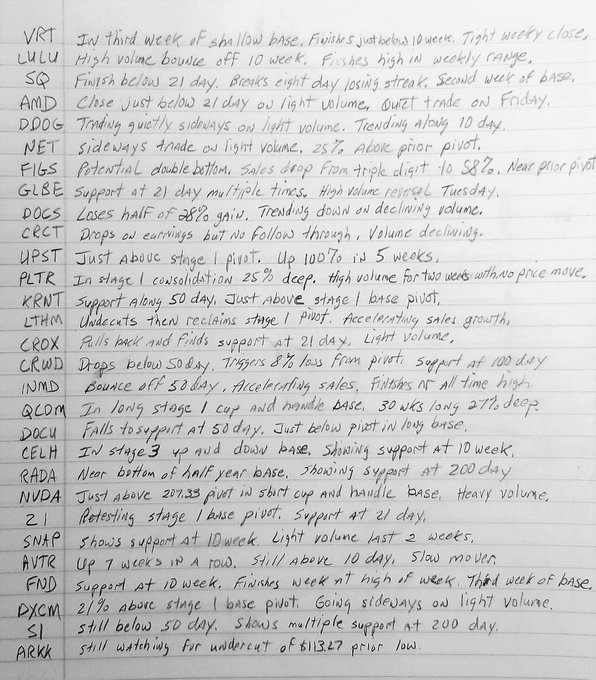 VRT In third week of shallow base. Finishes just below 10 week. Tight weekly close.
LULU High volume bounce off 10 week. Finishes high in weekly range.
SQ Finish below 21 day. Breaks eight day losing streak. Second week of base.
AMD Close just below 21 day on light volume. Quiet trade on Friday.
DDOG Trading quietly sideways on light volume. Trending along 10 day.
NET Sideways trade on light volume. 25% above prior pivot.
FIGS Potential double bottom. Sales drop from triple digit to 58%. Near prior pivot
GLBE Support at 21 day multiple times. High volume reversal Tuesday.
DOCS Loses half of 28% gain. Trending down on declining volume.
CRCT Drops on earnings but no follow through. Volume declining.
UPST Just above stage 1 pivot. Up 100% in 5 weeks.
PLTR In stage 1 consolidation 25% deep. High volume for two weeks with no price move.
KRNT Support along 50 day. Just above stage 1 base pivot.
LTHM Undecuts then reclaims stage 1 pivot. Accelerating sales growth.
CROX Pulls back and finds support at 21 day. Light volume.
CRWD Drops below 50 day. Triggers 8% loss from pivot. Support at 100 day
INMD Bounce off 50 day. Accelerating sales. Finishes at all time high.
QCOM In long stage 1 cup and handle base. 30 wks long 27% deep.
DOCU Falls to support at 50 day. Just below pivot in long base.
CELH In stage 3 up and down base. Showing support at 10 week.
RADA Near bottom of half year base. Showing support at 200 day
NVDA Just above 207.33 pivot in short cup and handle base. Heavy volume.
ZI Retesting stage 1 base pivot. Support at 21 day.
SNAP Shows support at 10 week. Light volume last 2 weeks.
AVTR Up 7 weeks in a row. Still above 10 day. Slow mover.
FND Support at 10 week. Finishes week at high of week. Third week of base.
DXCM 21% above stage 1 base pivot. Going sideways on light volume.
SI Still below 50 day. Shows multiple support at 200 day.
ARKK Still watching for undercut of $113.27 prior low.